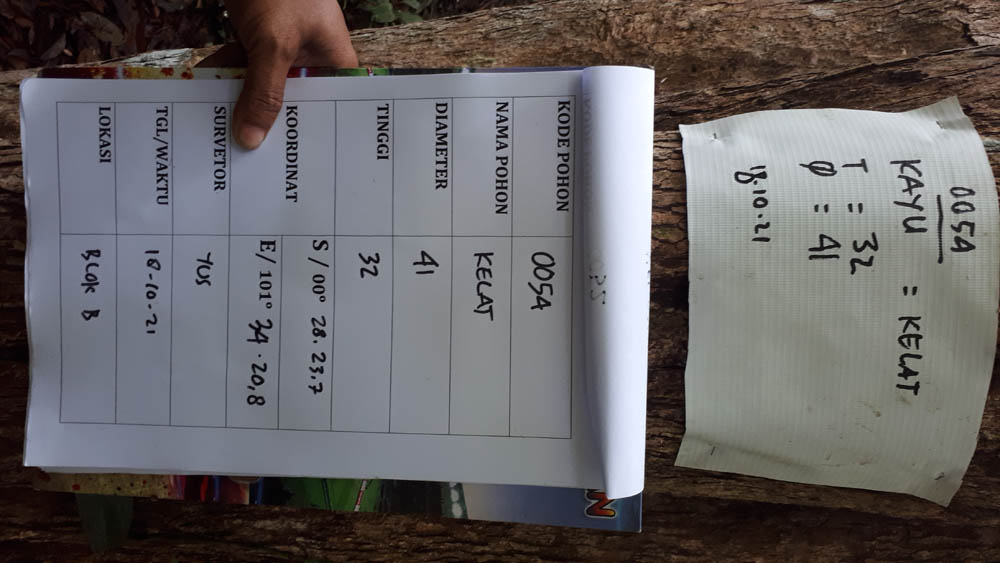 0054
KAYU = KELAT
T = 32
Ø = 41
18.10.21
KODE POHON 0054
NAMA POHON KELAT
DIAMETER 41
TINGGI 32
KOORDINAT
S / 00° 28. 23.7
E/ 101° 34 . 20,8
SURVETOR YUS
TGL/WAKTU 18-10-21
LOKASI BLOK B